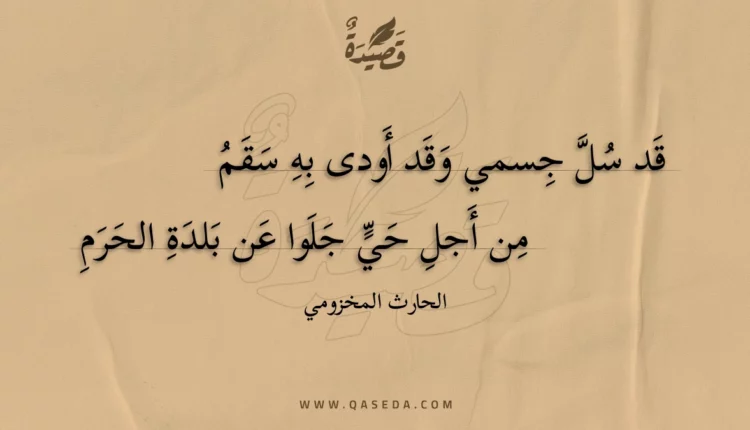 قَصِيدَةٌ
قَد سُلَّ جِسمي وَقَد أَودى بِهِ سَقَمُ
مِن أَجلِ حَيٍّ جَلَوا عَن بَلدَةِ الحَرَمِ
الحارث المخزومي
WWW.QASEDA.COM